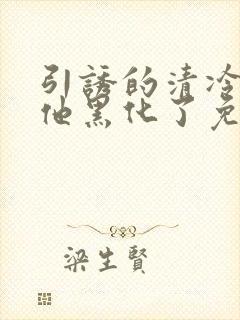 引誘的清冷
他黑化了免
梁生賢